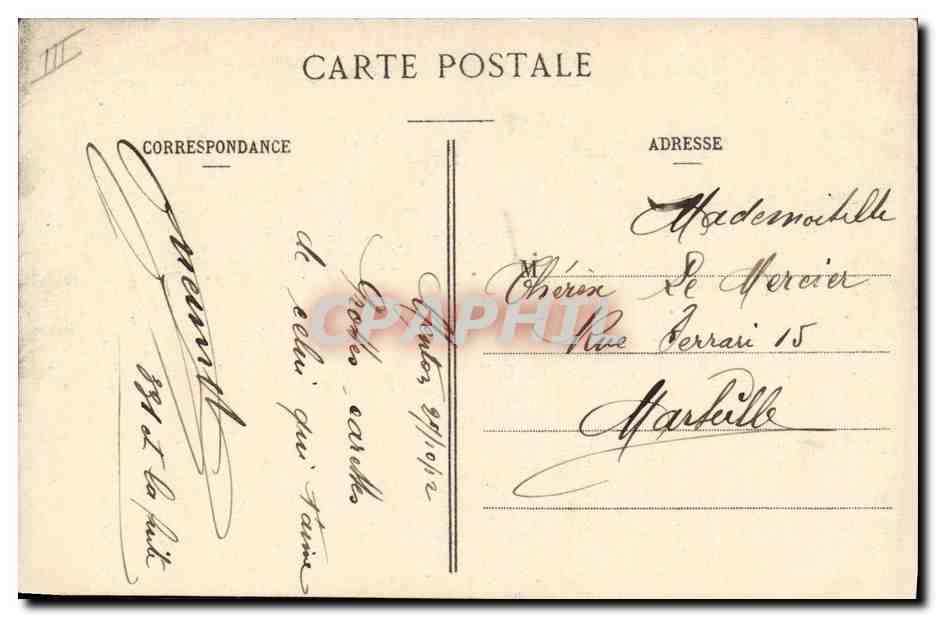 III
CARTE POSTALE
CORRESPONDANCE
Menton 28/10/12
Grosses carettes
de celui qui t'aime
331 et la suite
ADRESSE
Mademoiselle
M Thérèse Le Mercier
Rue Ferrari 15
Marseille
CPAPHIL